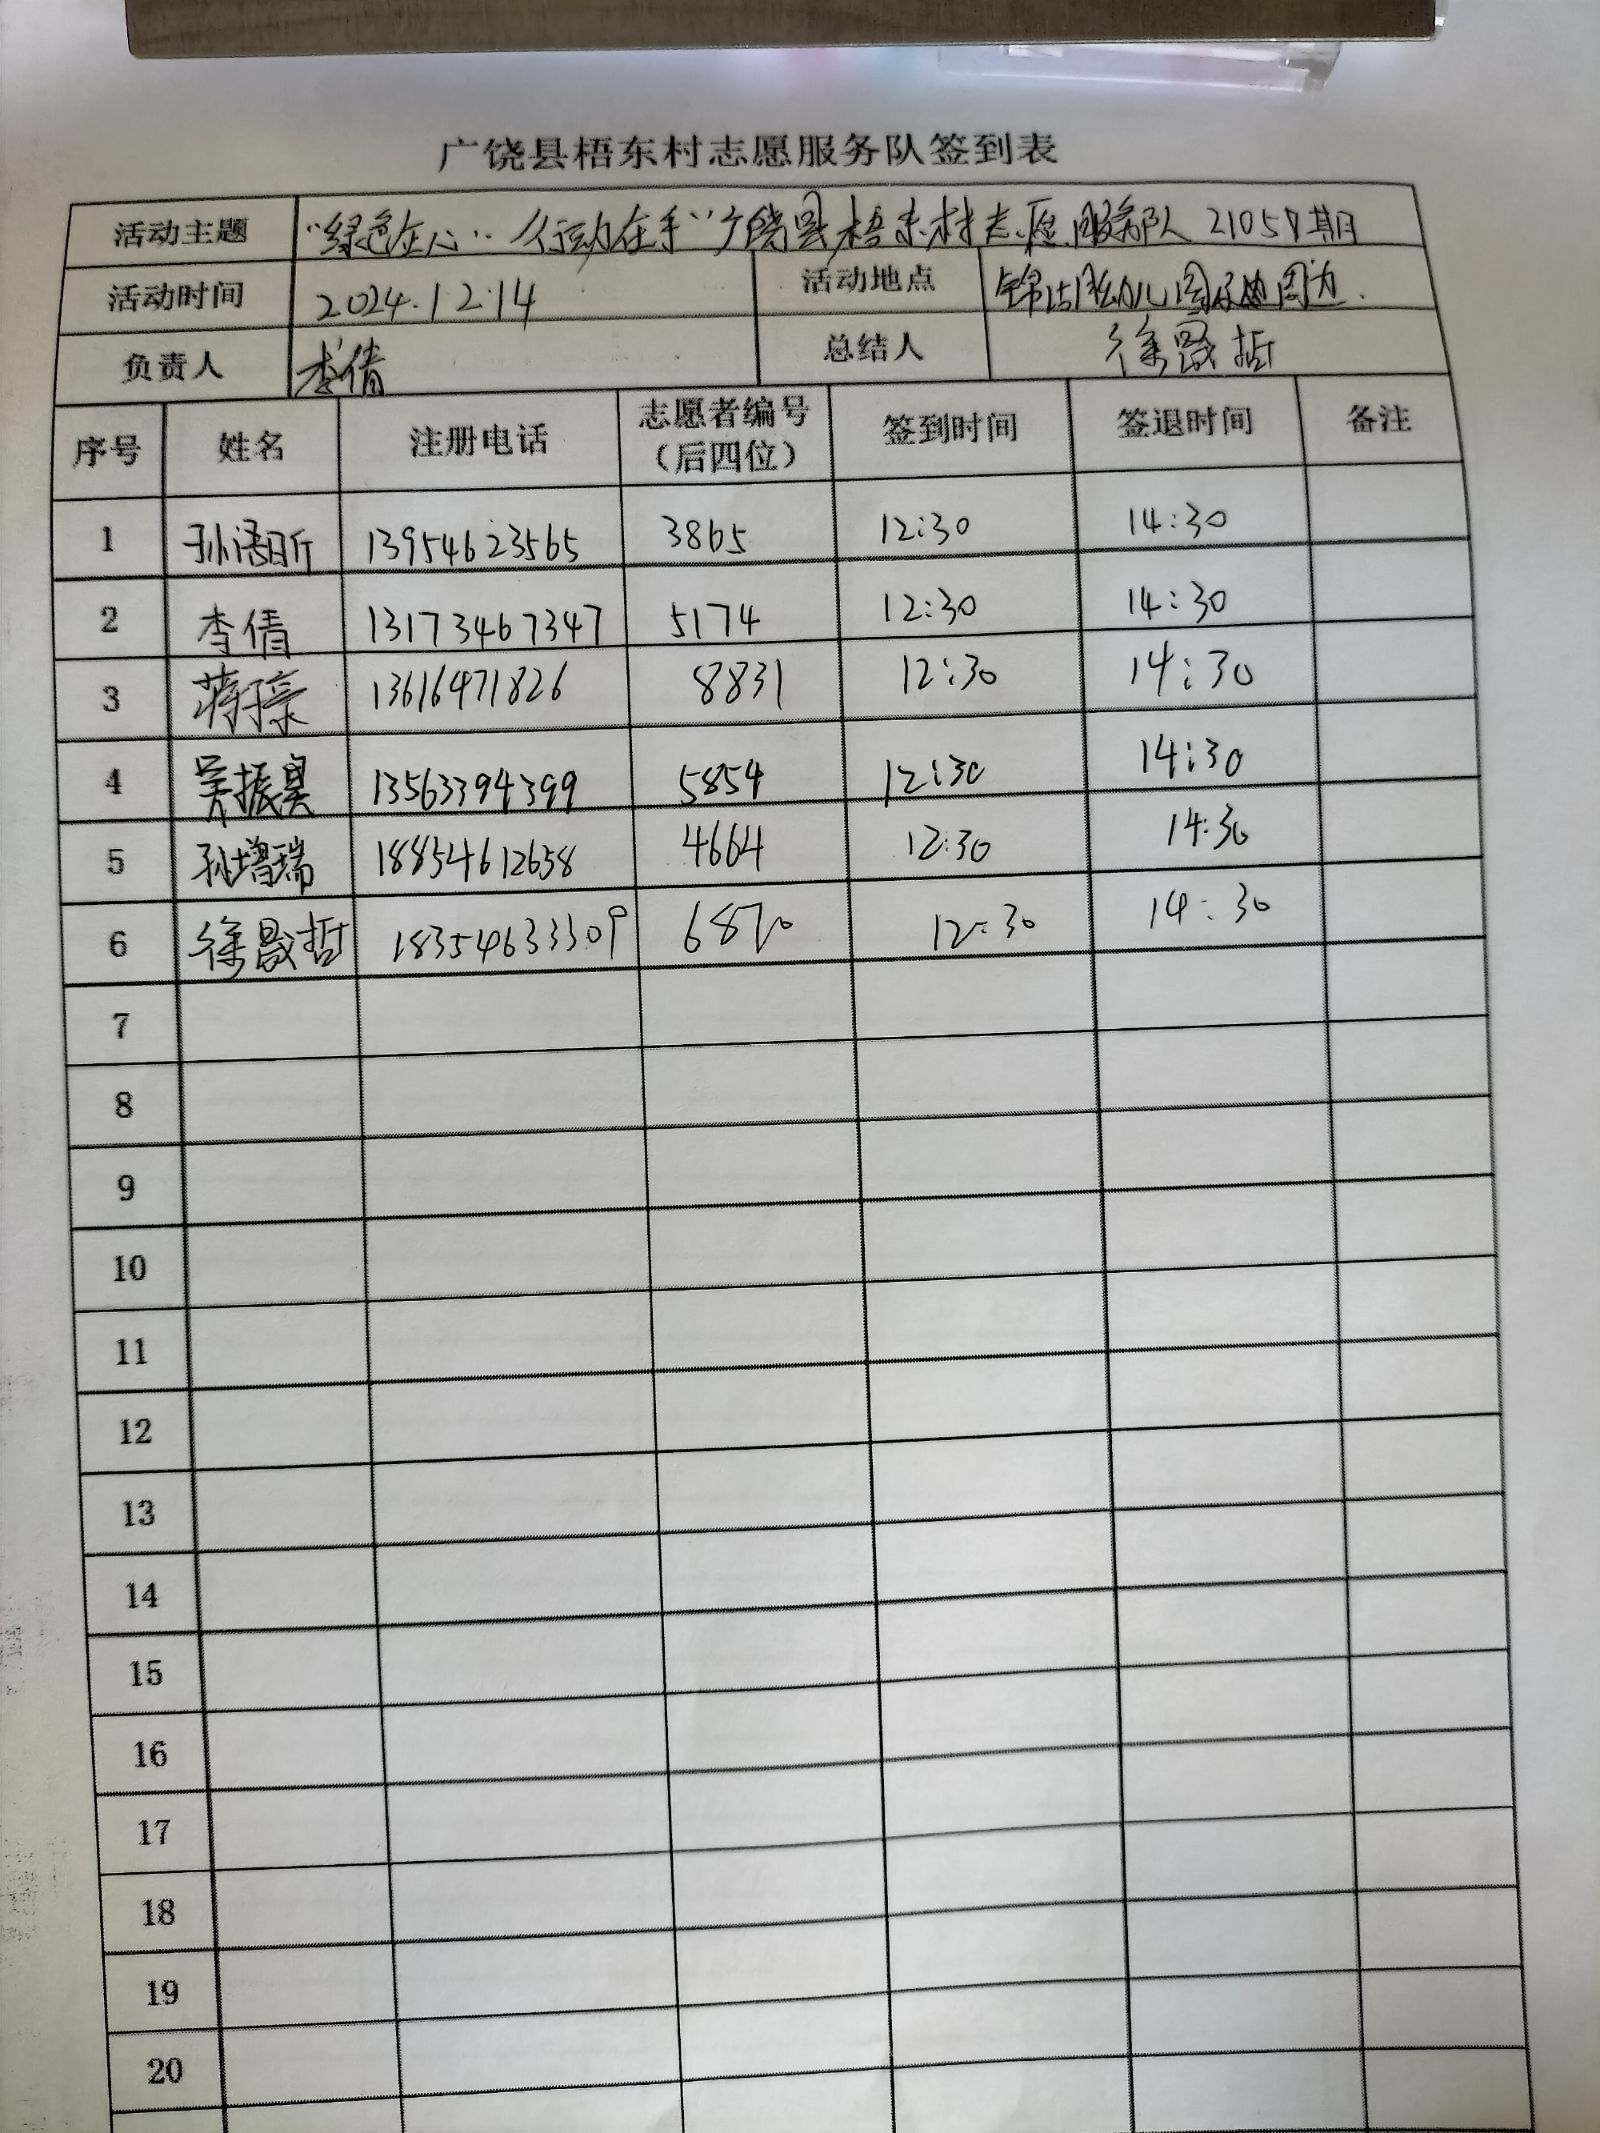 广饶县梧东村志愿服务队签到表
活动主题 “绿色在心”“行动在手”广饶县梧东村志愿服务队 21057期
活动时间 2024.12.14 活动地点 幼儿园及周边.
负责人 李倩 总结人 徐晸哲
序号 姓名 注册电话 志愿者编号（后四位） 签到时间 签退时间 备注
1 孙浯昕 13954623565 3865 12:30 14:30
2 李倩 13173467347 5174 12:30 14:30
3 蒋 13616471826 8831 12:30 14:30
4 吴振昊 13563394399 5854 12:30 14:30
5 孙增瑞 18854612658 4664 12:30 14:30
6 徐晸哲 18354633309 6870 12:30 14:30
7
8
9
10
11
12
13
14
15
16
17
18
19
20